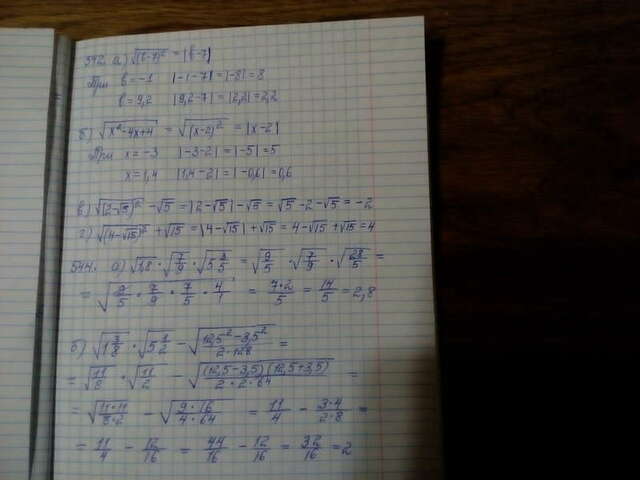 392. а) √(b-7)² = |b-7|
При b=-1 |-1-7|=|-8|=8
b=9,2 |9,2-7|=|2,2|=2,2
б) √x²-4x+4 = √(x-2)² = |x-2|
При x=-3 |-3-2|=|-5|=5
x=1,4 |1,4-2|=|-0,6|=0,6
в) √(2-√5)² -√5 = |2-√5|-√5 = √5-2-√5 = -2
г) √(4-√15)² +√15 = |4-√15|+√15 = 4-√15+√15 = 4
544. а) √1,8 · √7/9 · √5 3/5 = √9/5 · √7/9 · √28/5 =
= √9/5 · 7/9 · 7/5 · 4/1 = 7·2/5 = 14/5 = 2,8
б) √1 3/8 · √5 1/2 - √12,5²-3,5²/2·128 =
= √11/8 · √11/2 - √(12,5-3,5)(12,5+3,5)/2·2·64 =
= √11·11/8·2 - √9·16/4·64 = 11/4 - 3·4/2·8 =
= 11/4 - 12/16 = 44/16 - 12/16 = 32/16 = 2